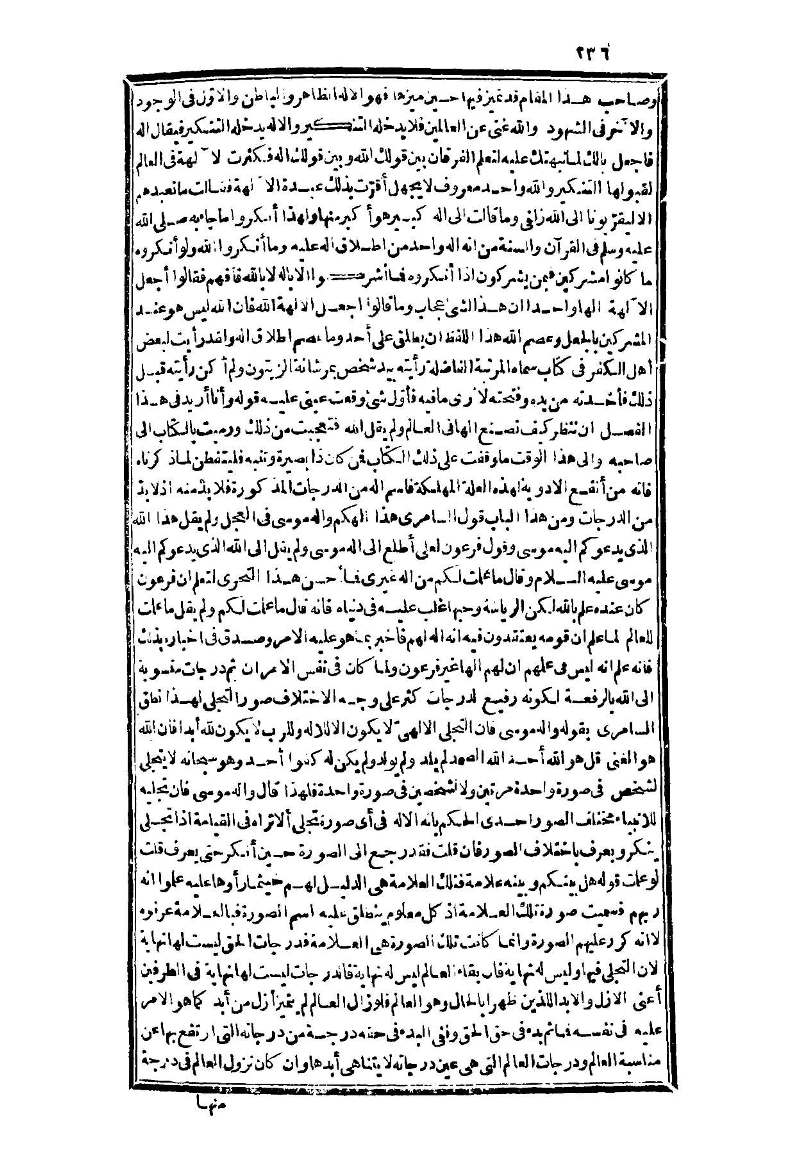 ٢٣٦
وصاحب هذا المقام قد تميز فيها حين ميزها فهو الاله الظاهر والباطن والاول في الوجود
والآخر في الشهود والله غني عن العالمين فلا يدخله التنكير والاله يدخله التنكير فيقال اله
فاجعل بالك لما نبهتك عليه لتعلم الفرقان بين قولك الله وبين قولك اله فكثرت الآلهة في العالم
لقبولها التنكير والله واحد معروف لا يجهل أقرت بذلك عبدة الآلهة فقالت ما نعبدهم
الا ليقربونا الى الله زلفى وما قالت الى اله كبير هو أكبر منها ولهذا أنكروا ما جاء به صلى الله
عليه وسلم في القرآن والسنة من انه اله واحد من اطلاق اله عليه وما أنكروا الله ولو أنكروه
ما كانوا مشركين فبمن يشركون اذا أنكروه فما أشركوا الا باله لا بالله فافهم فقالوا أجعل
الآلهة الها واحدا ان هذا لشئ عجاب وما قالوا اجعل الآلهة الله فان الله ليس هو عند
المشركين بالجعل وعصم الله هذا اللفظ ان يطلق على أحد وما عصم اطلاق اله ولقد رأيت لبعض
أهل الكفر في كتاب سماه المرتبة الفاضلة رأيته بيد شخص بمرشانة الزيتون ولم أكن رأيته قبل
ذلك فأخذته من يده وفتحته لأرى ما فيه فأول شئ وقعت عيني عليه قوله وأنا أريد في هذا
الفصل ان ننظر كيف نصنع الها في العالم ولم يقل الله فتعجبت من ذلك ورميت بالكتاب الى
صاحبه والى هذا الوقت ما وقفت على ذلك الكتاب فمن كان ذا بصيرة وتنبه فليتفطن لما ذكرناه
فانه من أنفع الادوية لهذه العلة المهلكة فاسم اله من الدرجات المذكورة فلا بد منه اذ لا بد
من الدرجات ومن هذا الباب قول السامري هذا الهكم واله موسى في العجل ولم يقل هذا الله
الذي يدعوكم اليه موسى وقول فرعون لعلي أطلع الى اله موسى ولم يقل الى الله الذي يدعوكم اليه
موسى عليه السلام وقال ما علمت لكم من اله غيري فما أحسن هذا التحري لتعلم ان فرعون
كان عنده علم بالله لكن الرياسة وحبها غلب عليه في دنياه فانه قال ما علمت لكم ولم يقل ما علمت
للعالم لما علم ان قومه يعتقدون فيه انه اله لهم فأخبر بما هو عليه الامر وصدق في اخباره بذلك
فانه علم انه ليس في علمهم ان لهم الها غير فرعون ولما كان في نفس الامر ان ثم درجات منسوبة
الى الله بالرفعة لكونه رفيع الدرجات كثر على وجه الاختلاف صور التجلي لهذا نطق
السامري بقوله واله موسى فان التجلي الالهي لا يكون الا للاله وللرب لا يكون لله أبدا فان الله
هو الغني قل هو الله أحد الله الصمد لم يلد ولم يولد ولم يكن له كفوا أحد وهو سبحانه لا يتجلى
لشخص في صورة واحدة مرتين ولا لشخصين في صورة واحدة فلهذا قال واله موسى فان تجليه
للانبياء مختلف الصور احدي الحكم بانه الاله في أي صورة تجلى ألا تراه في القيامة اذا تجلى
ينكر ويعرف باختلاف الصور فان قلت فقد رجع الى الصورة حين أنكر حتى يعرف قلت
لو علمت قوله هل بينكم وبينه علامة فتلك العلامة هي الدليل لهم حيثما رأوها عليه علموا انه
ربهم فسميت صورة تلك العلامة اذ كل معلوم ينطلق عليه اسم الصورة فبالعلامة عرفوه
لا انه كرر عليهم الصورة وانما كانت تلك الصورة هي العلامة فدرجات الحق ليست لها نهاية
لان التجلي فيها وليس له نهاية فان بقاء العالم ليس له نهاية فالدرجات ليست لها نهاية في الطرفين
أعني الازل والابد اللذين ظهرا بالحال وهو العالم فلو زال العالم لم يتميز أزل من أبد كما هو الامر
عليه في نفسه فما ثم بدء في حق الحق ونفي البدء في حقه درجة من درجاته التي ارتفع بها عن
مناسبة العالم ودرجات العالم التي هي عين درجاته لا يتناهى أبدها وان كان نزول العالم في درجة
منها